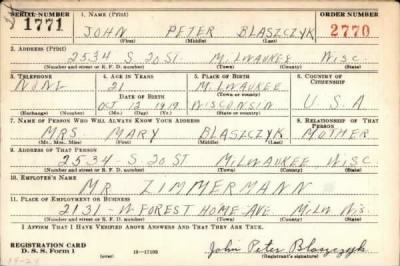 SERIAL NUMBER 1. NAME (Print) ORDER NUMBER
1771 JOHN PETER BLASZCZYK 2770
(First) (Middle) (Last)
2. ADDRESS (Print)
2534 S 20 ST MILWAUKEE WISC.
(Number and street or R. F. D. number) (Town) (County) (State)
3. TELEPHONE 4. AGE IN YEARS 5. PLACE OF BIRTH 6. COUNTRY OF CITIZENSHIP
NONE 21 MILWAUKEE
DATE OF BIRTH (Town or county)
OCT 12 1919 WISCONSIN U.S.A
(Exchange) (Number) (Mo.) (Day) (Yr.) (State or country)
7. NAME OF PERSON WHO WILL ALWAYS KNOW YOUR ADDRESS 8. RELATIONSHIP OF THAT PERSON
MRS MARY BLASZCZYK MOTHER
(Mr., Mrs., Miss) (First) (Middle) (Last)
9. ADDRESS OF THAT PERSON
2534-S 20 ST MILWAUKEE WISC
(Number and street or R. F. D. number) (Town) (County) (State)
10. EMPLOYER'S NAME
MR ZIMMERMANN
11. PLACE OF EMPLOYMENT OR BUSINESS
2131-W-FOREST HOME-AVE MILW WIS
(Number and street or R. F. D. number) (Town) (County) (State)
I AFFIRM THAT I HAVE VERIFIED ABOVE ANSWERS AND THAT THEY ARE TRUE.
REGISTRATION CARD
D. S. S. Form 1 16-17105 John Peter Blaszczyk
(Registrant's signature)